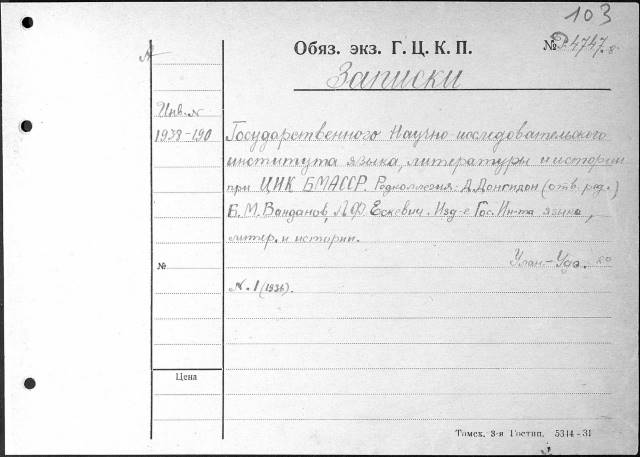 103
Обяз. экз. Г. Ц. К. П. № Р.4747.
Записки
Инв. №
1938-190
Государственного Научно-исследовательского
института языка, литературы и истории
при ЦИК БМАССР. Редколлегия: Д. Донгидон (отв. ред.)
Б. М. Ванданов, Л. Ф. Ескевич. Изд-е Гос. Ин-та языка,
литер. и истории.
Улан-Удэ.
№
№ 1 (1936).
Цена
Томск. 3-я Гостип. 5344-31